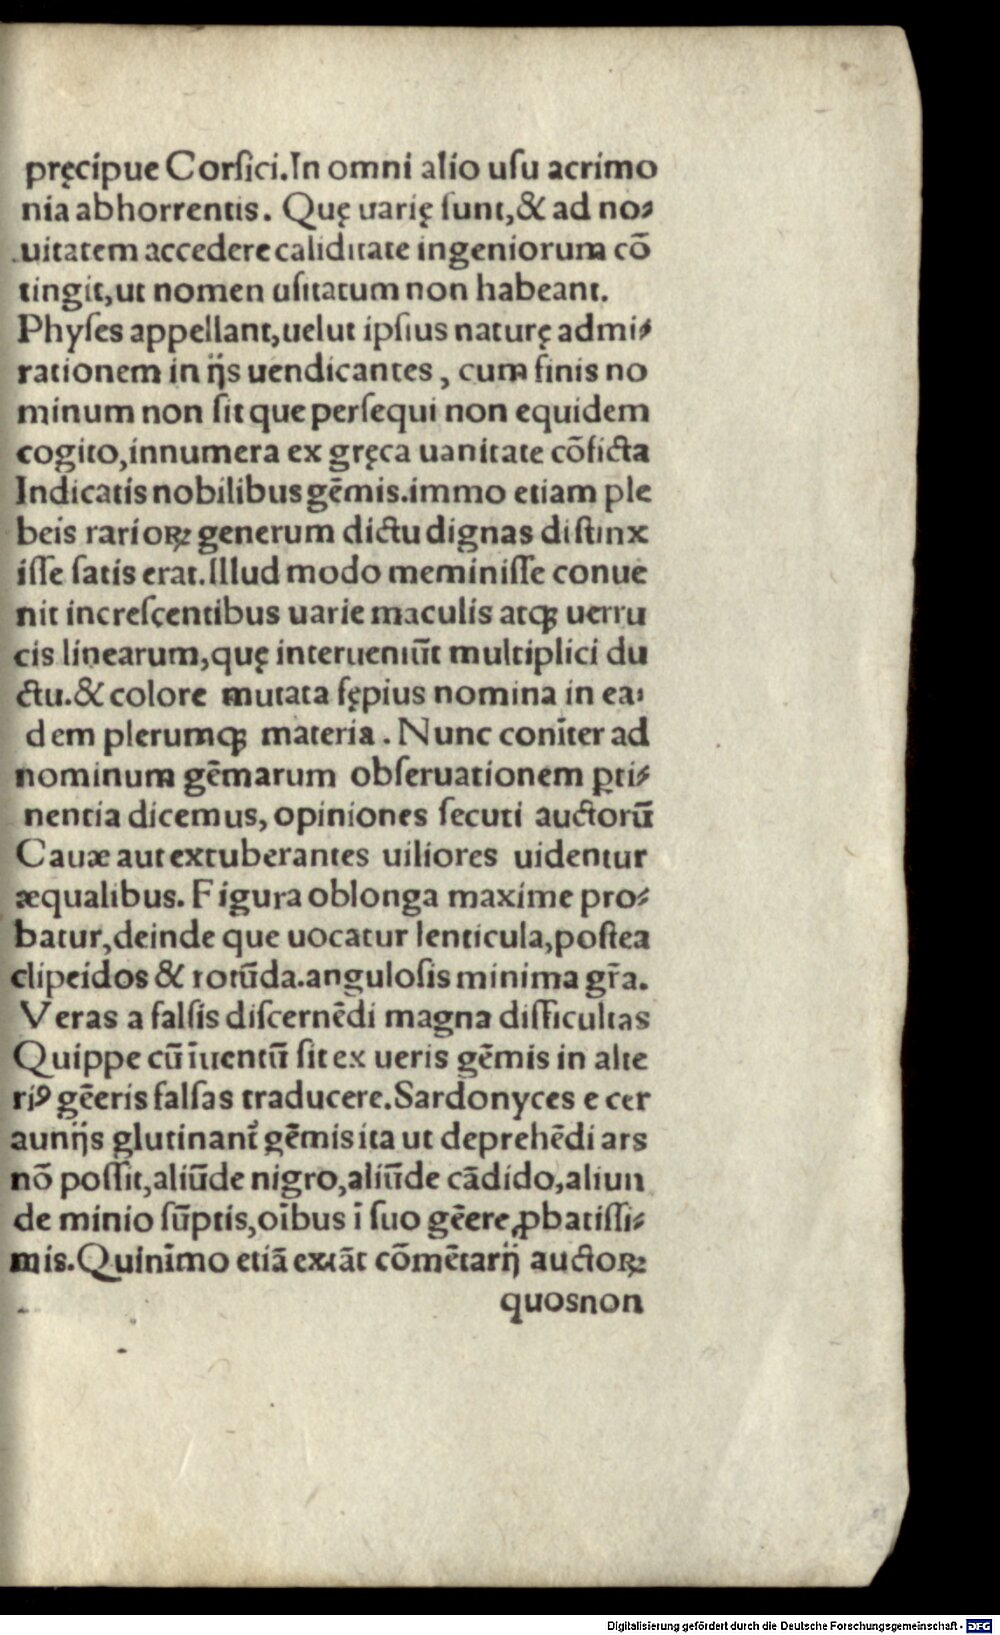 pręcipue Corſici.In omni alio uſu acrimo
nia abhorrentis. Quę uarię ſunt,& ad no⸗
uitatem accedere caliditate ingeniorum cō
tingit,ut nomen uſitatum non habeant.
Phyſes appellant,uelut ipſius naturę admi⸗
rationem in ijs uendicantes, cum finis no
minum non ſit que perſequi non equidem
cogito,innumera ex gręca uanitate cōficta
Indicatis nobilibus gēmis.immo etiam ple
beis rarioꝝ generum dictu dignas diſtinx
iſſe ſatis erat.Illud modo meminiſſe conue
nit increſcentibus uarie maculis atqꝫ uerru
cis linearum,quę interueniūt multiplici du
ctu.& colore mutata ſępius nomina in ea⸗
dem plerumqꝫ materia. Nunc conīter ad
nominum gēmarum obſeruationem ꝑti⸗
nentia dicemus, opiniones ſecuti auctorū
Cauæ aut extuberantes uiliores uidentur
æqualibus. Figura oblonga maxime pro⸗
batur,deinde que uocatur lenticula,poſtea
clipeidos & rotūda.anguloſis minima gr̄a.
Veras a falſis diſcernēdi magna difficultas
Quippe cū īuentū ſit ex ueris gēmis in alte
riꝰ gēeris falſas traducere.Sardonyces e cer
aunijs glutinant᷑ gēmis ita ut deprehēdi ars
nō poſſit,aliūde nigro,aliūde cādido,aliun
de minio ſūptis,oībus ī ſuo gēere ꝓbatiſſi⸗
mis.Quinīmo etiā extāt cōmētarij auctoꝝ
quosnon
Digitalisierung gefördert durch die Deutsche Forschungsgemeinschaft - DFG